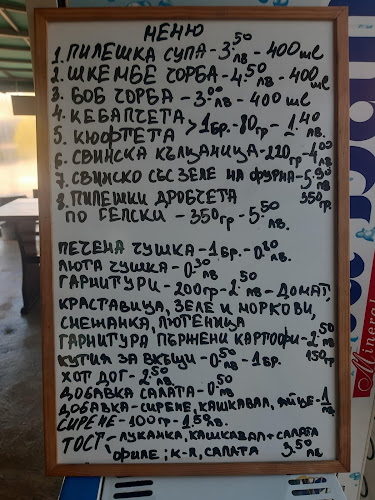 МЕНЮ
1. ПИЛЕШКА СУПА - 3.50 - 400 ml
2. ШКЕМБЕ ЧОРБА - 4.50 лв - 400 ml
3. БОБ ЧОРБА - 3.00 лв - 400 ml
4. КЕБАПЧЕТА
5. КЮФТЕТА > 1 бр. - 80 гр - 1.40 лв
6. СВИНСКА КЪЛЦАНИЦА - 220 гр - 4.00 лв
7. СВИНСКО СЪС ЗЕЛЕ НА ФУРНА - 5.90 лв 350 гр
8. ПИЛЕШКИ ДРОБЧЕТА
ПО СЕЛСКИ - 350 гр - 5.50 лв.
ПЕЧЕНА ЧУШКА - 1 бр. - 0.80 лв.
ЛЮТА ЧУШКА - 0.30 лв
ГАРНИТУРИ - 200 гр - 2.50 лв - ДОМАТ,
КРАСТАВИЦА, ЗЕЛЕ И МОРКОВИ,
СНЕЖАНКА, ЛЮТЕНИЦА
ГАРНИТУРА ПЪРЖЕНИ КАРТОФИ - 2.50 лв
КУТИЯ ЗА ВКЪЩИ - 0.50 лв - 1 бр. 150 гр
ХОТ ДОГ - 2.50 лв
ДОБАВКА САЛАТА - 0.50 лв
ДОБАВКА - СИРЕНЕ, КАШКАВАЛ, ЯЙЦЕ - 1 лв
СИРЕНЕ - 100 гр - 1.50 лв.
ТОСТ - ЛУКАНКА, КАШКАВАЛ + САЛАТА
ФИЛЕ; К-Л, САЛАТА 3.50 лв
Mineral